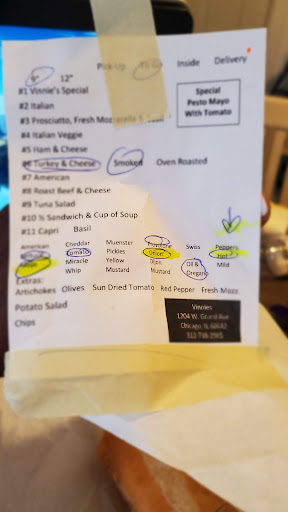 Pick-Up To Go Inside Delivery
9" 12"
#1 Vinnie's Special
Special
Pesto Mayo
With Tomato
#2 Italian
#3 Prosciutto, Fresh Mozzarella &
#4 Italian Veggie
#5 Ham & Cheese
#6 Turkey & Cheese Smoked Oven Roasted
#7 American
#8 Roast Beef & Cheese
#9 Tuna Salad
#10 ½ Sandwich & Cup of Soup
#11 Capri Basil
American Cheddar Muenster Provolone Swiss Peppers
Tomato Pickles Onion Oil & Oregano Hot
Miracle Whip Yellow Mustard Dijon Mustard Mild
Extras:
Artichokes Olives Sun Dried Tomato Red Pepper Fresh Mozz.
Potato Salad
Chips
Vinnies
1204 W. Grand Ave
Chicago, IL 60642